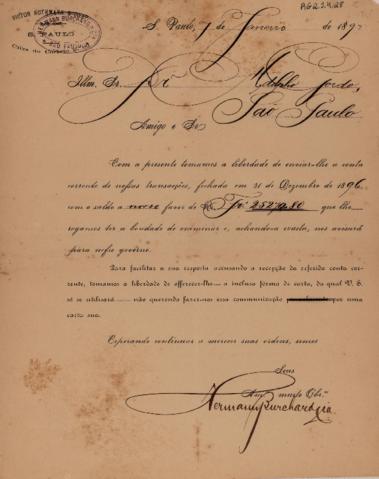 AG2.4.28
VICTOR NOTHMANN
S. PAULO
Caixa do Correio
S. Paulo, 1 de Janeiro de 1897
Illm. Sr. Adolpho Gordo,
São Paulo
Amigo e Sr.
Com a presente tomamos a liberdade de enviar-lhe a conta
corrente de nossas transacções, fechada em 31 de Dezembro de 1896,
com o saldo a nosso favor de Rs. 252$980 que lhe
rogamos ter a bondade de examinar e, achando-a exacta, nos accusará
para nosso governo.
Para facilitar a sua resposta accusando a recepção da referida conta cor-
rente, tomamos a liberdade de offerecer-lhe a inclusa forma de carta, da qual V. S.
só se utilisará não querendo fazer-nos essa communicação por uma
carta sua.
Esperando continuar a merecer suas ordens, somos
Seus
Am. muito Obr.
Hermann Burchard & Cia.